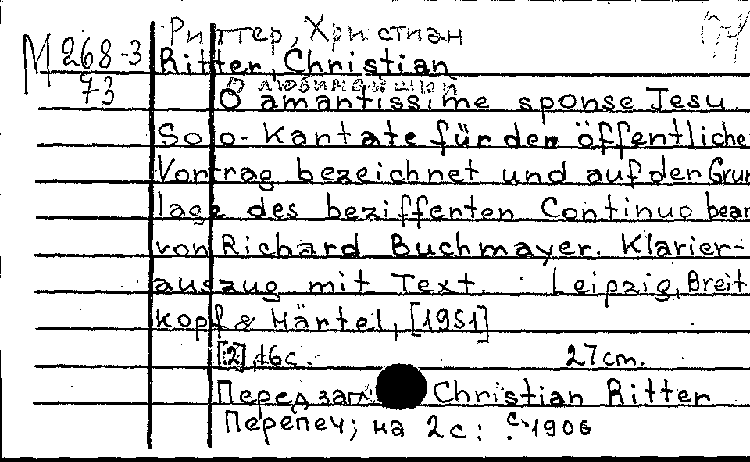 Риттер, Христиан
М 268-3
73
Ritter, Christian
О любимейший
O amantissime sponse Jesu
Solo-Kantate für den öffentliche
Vortrag bezeichnet und auf der Grun
lage des beziffenten Continuo bear
von Richard Buchmayer. Klavier-
auszug mit Text. Leipzig, Breit
kopf & Härtel, [1951]
[2], 16 с. 27 cm.
Перед заг Christian Ritter
Перепеч; на 2 с: с 1906